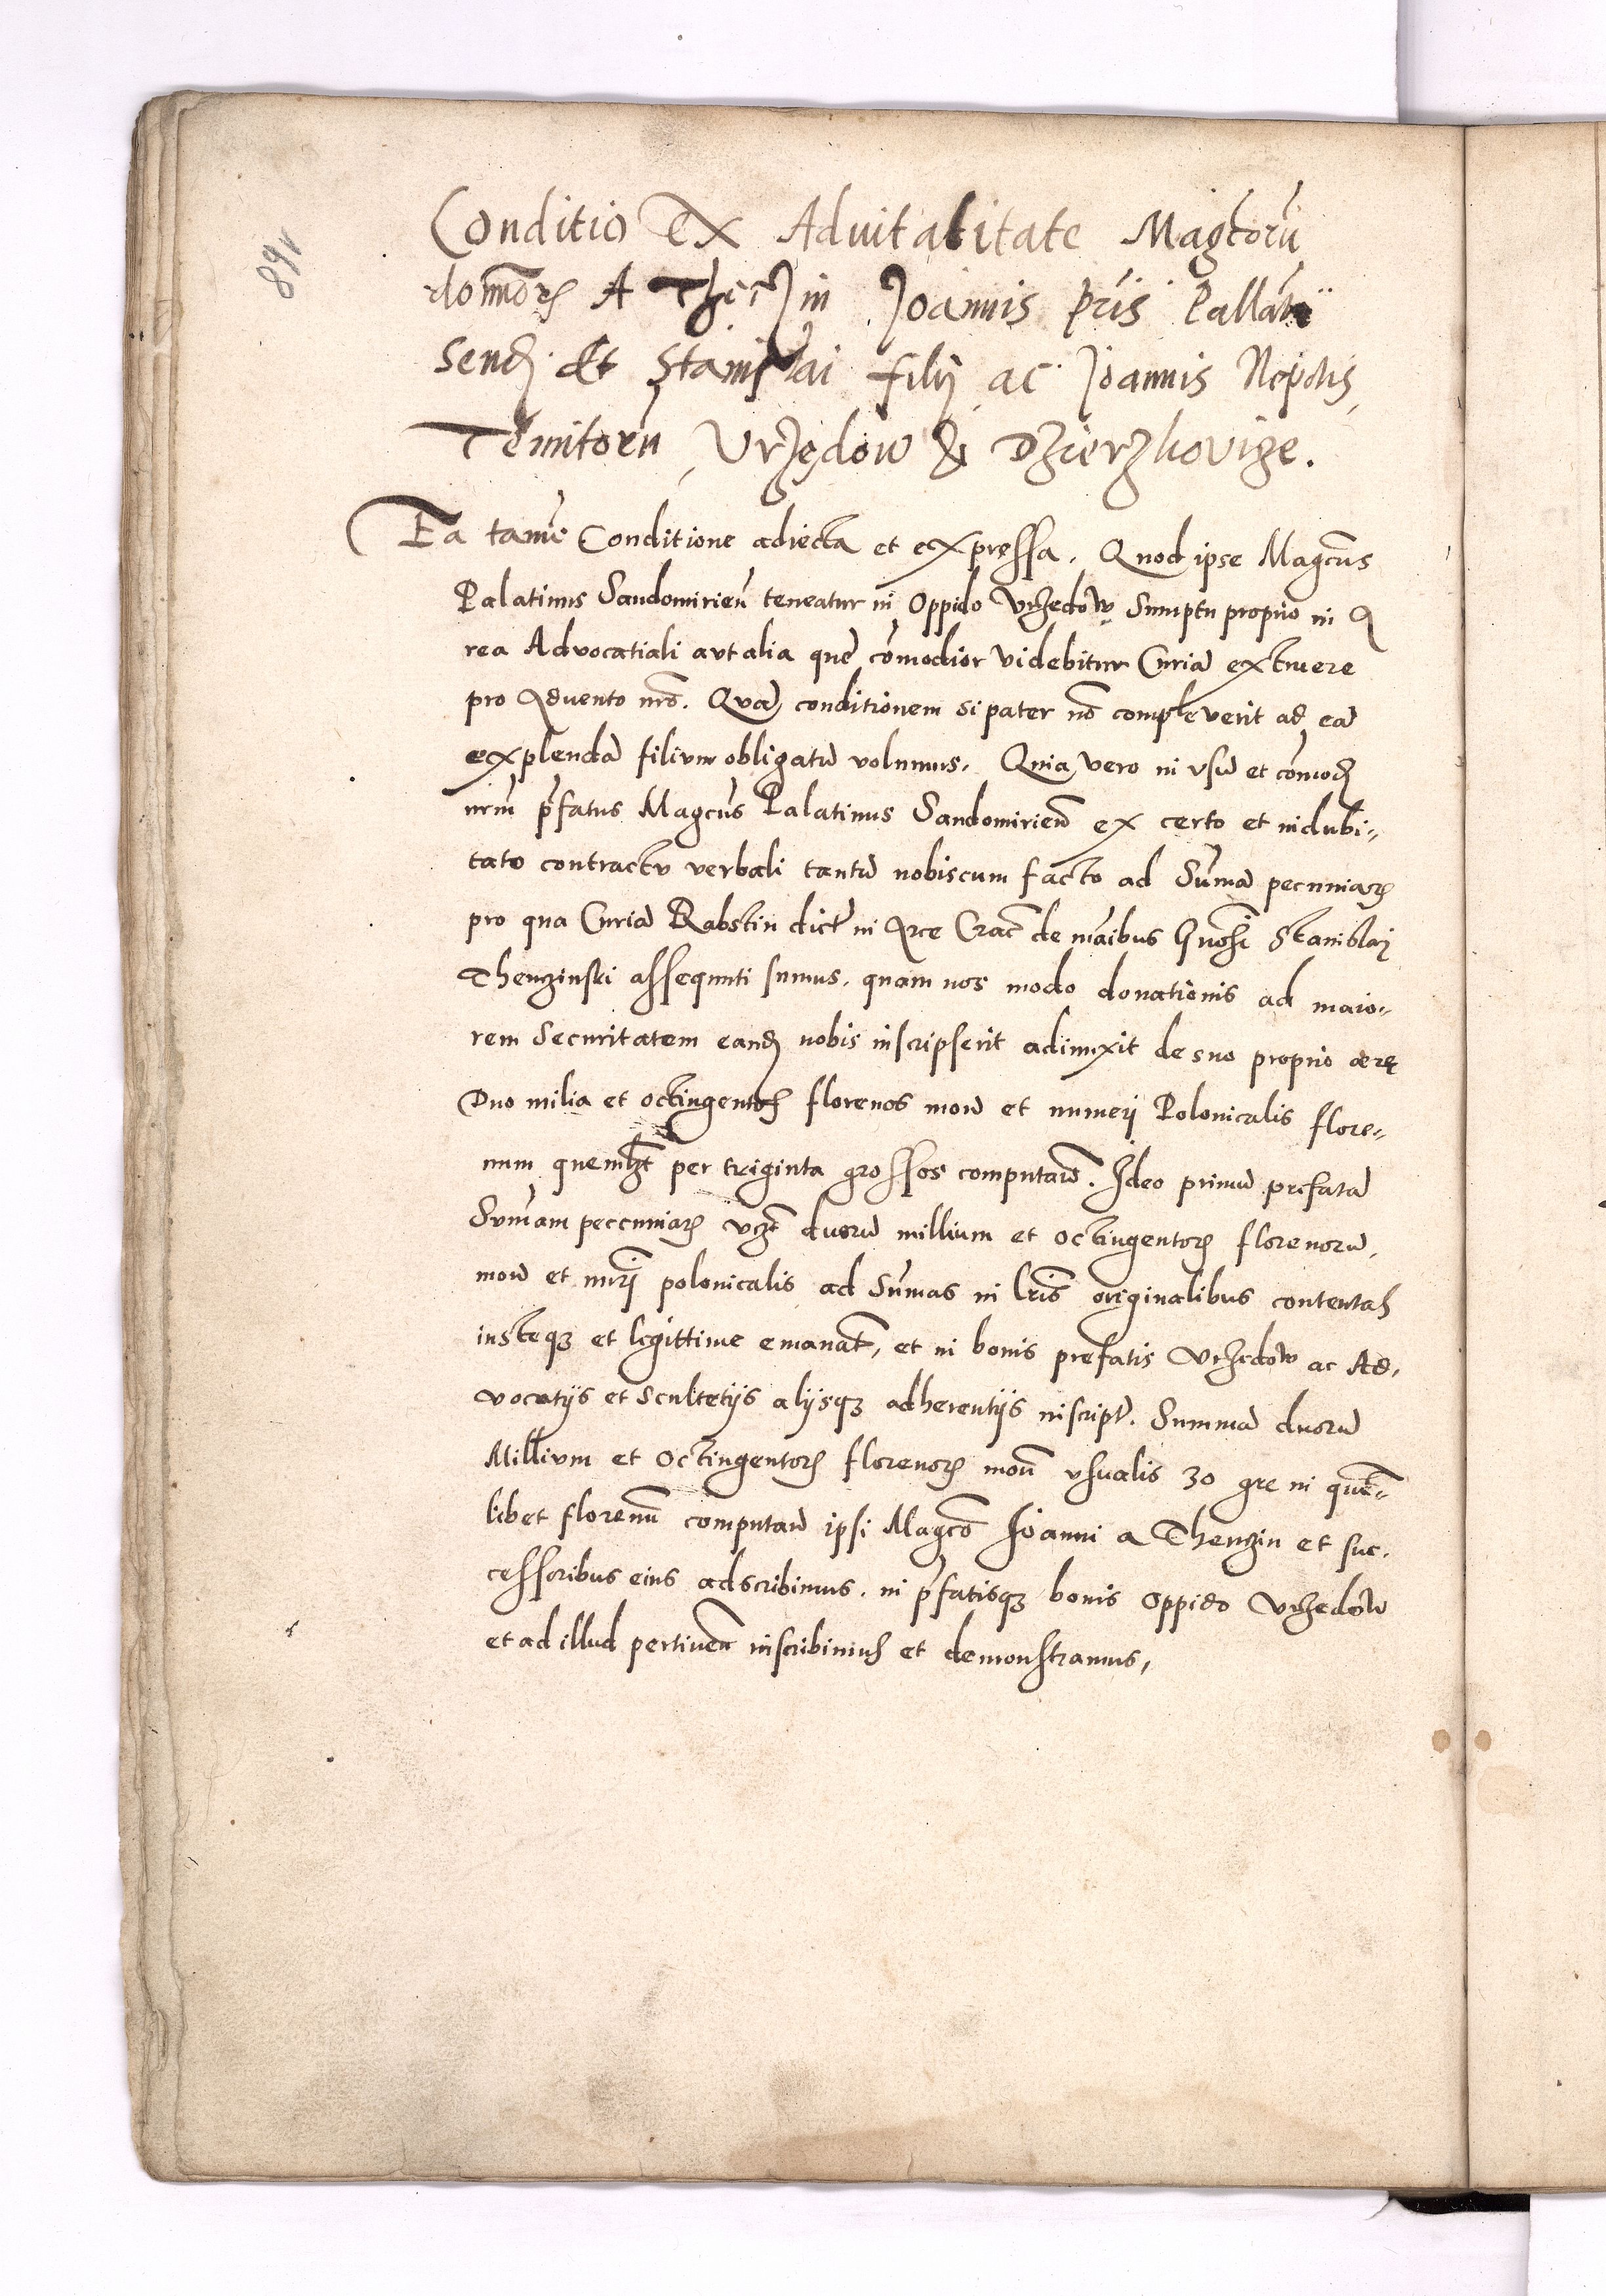 89v
Conditio Ex Advitalitate Magcorũ
domorꝝ A Thecʒin Joannis pris̃ Pallatñ
Send. Et Stanislai filij ac Joannis Nepotis
Tenutorũ Vrʒędow & Dʒierʒkovicze.
Ea tamẽ Conditione adiecta et expressa. Quod ipse Magcũs
Palatinus Sandomirien̄ teneatur in Oppido Vrʒedow Sumptu proprio in A
rea Advocatiali aut alia que cõmodior videbitur Curiã extruere
pro Aduento nr̃o. Quã conditionem si pater nõ compleverit ad eã
explendã filium obligatũ volumus. Quia vero in vsũ et cõmod
nr̃m p̃fatus Magcũs Palatinus Sandomirien̄ ex certo et indubi-
tato contractu verbali tantũ nobiscum facto ad Sum̃ã pecuniarꝝ
pro qua Curiã Rabstin dict̃ in Arce Crac̃ de mãibus Gnosi̇̃ Stanislaj
Thenʒinski assequuti sumus. quam nos modo donationis ad maio-
rem Securitatem eand nobis inscripserit adiunxit de suo proprio aere
Duo milia et octingentos florenos moñ et numeri Polonicalis flore-
num quemlʒt per triginta grossos computand̃. Ideo primũ prefatã
Sum̃am peccuniarꝝ vʒt duorũ millium et octingentorꝝ florenorũ,
moñ et nuri̇̃ polonicalis ad Sum̃as in lr̃is originalibus contentas
iusteqʒ et legittime emanat̃, et in bonis prefatis Vrʒedow ac Ad,
vocatijs et Scultetijs alijsqʒ adherentijs inscript̃. Summã duorũ
Millium et Octingentorꝝ florenorꝝ moñ vsualis 30 gre in quẽ-
libet florenũ computañ ipsi Magcõ Joanni a Thenʒin et suc.
cessoribus eius adscribimus. in p̃fatisqʒ bonis Oppido Vrʒedow
et ad illud pertineñ inscribimus et demonstramus,